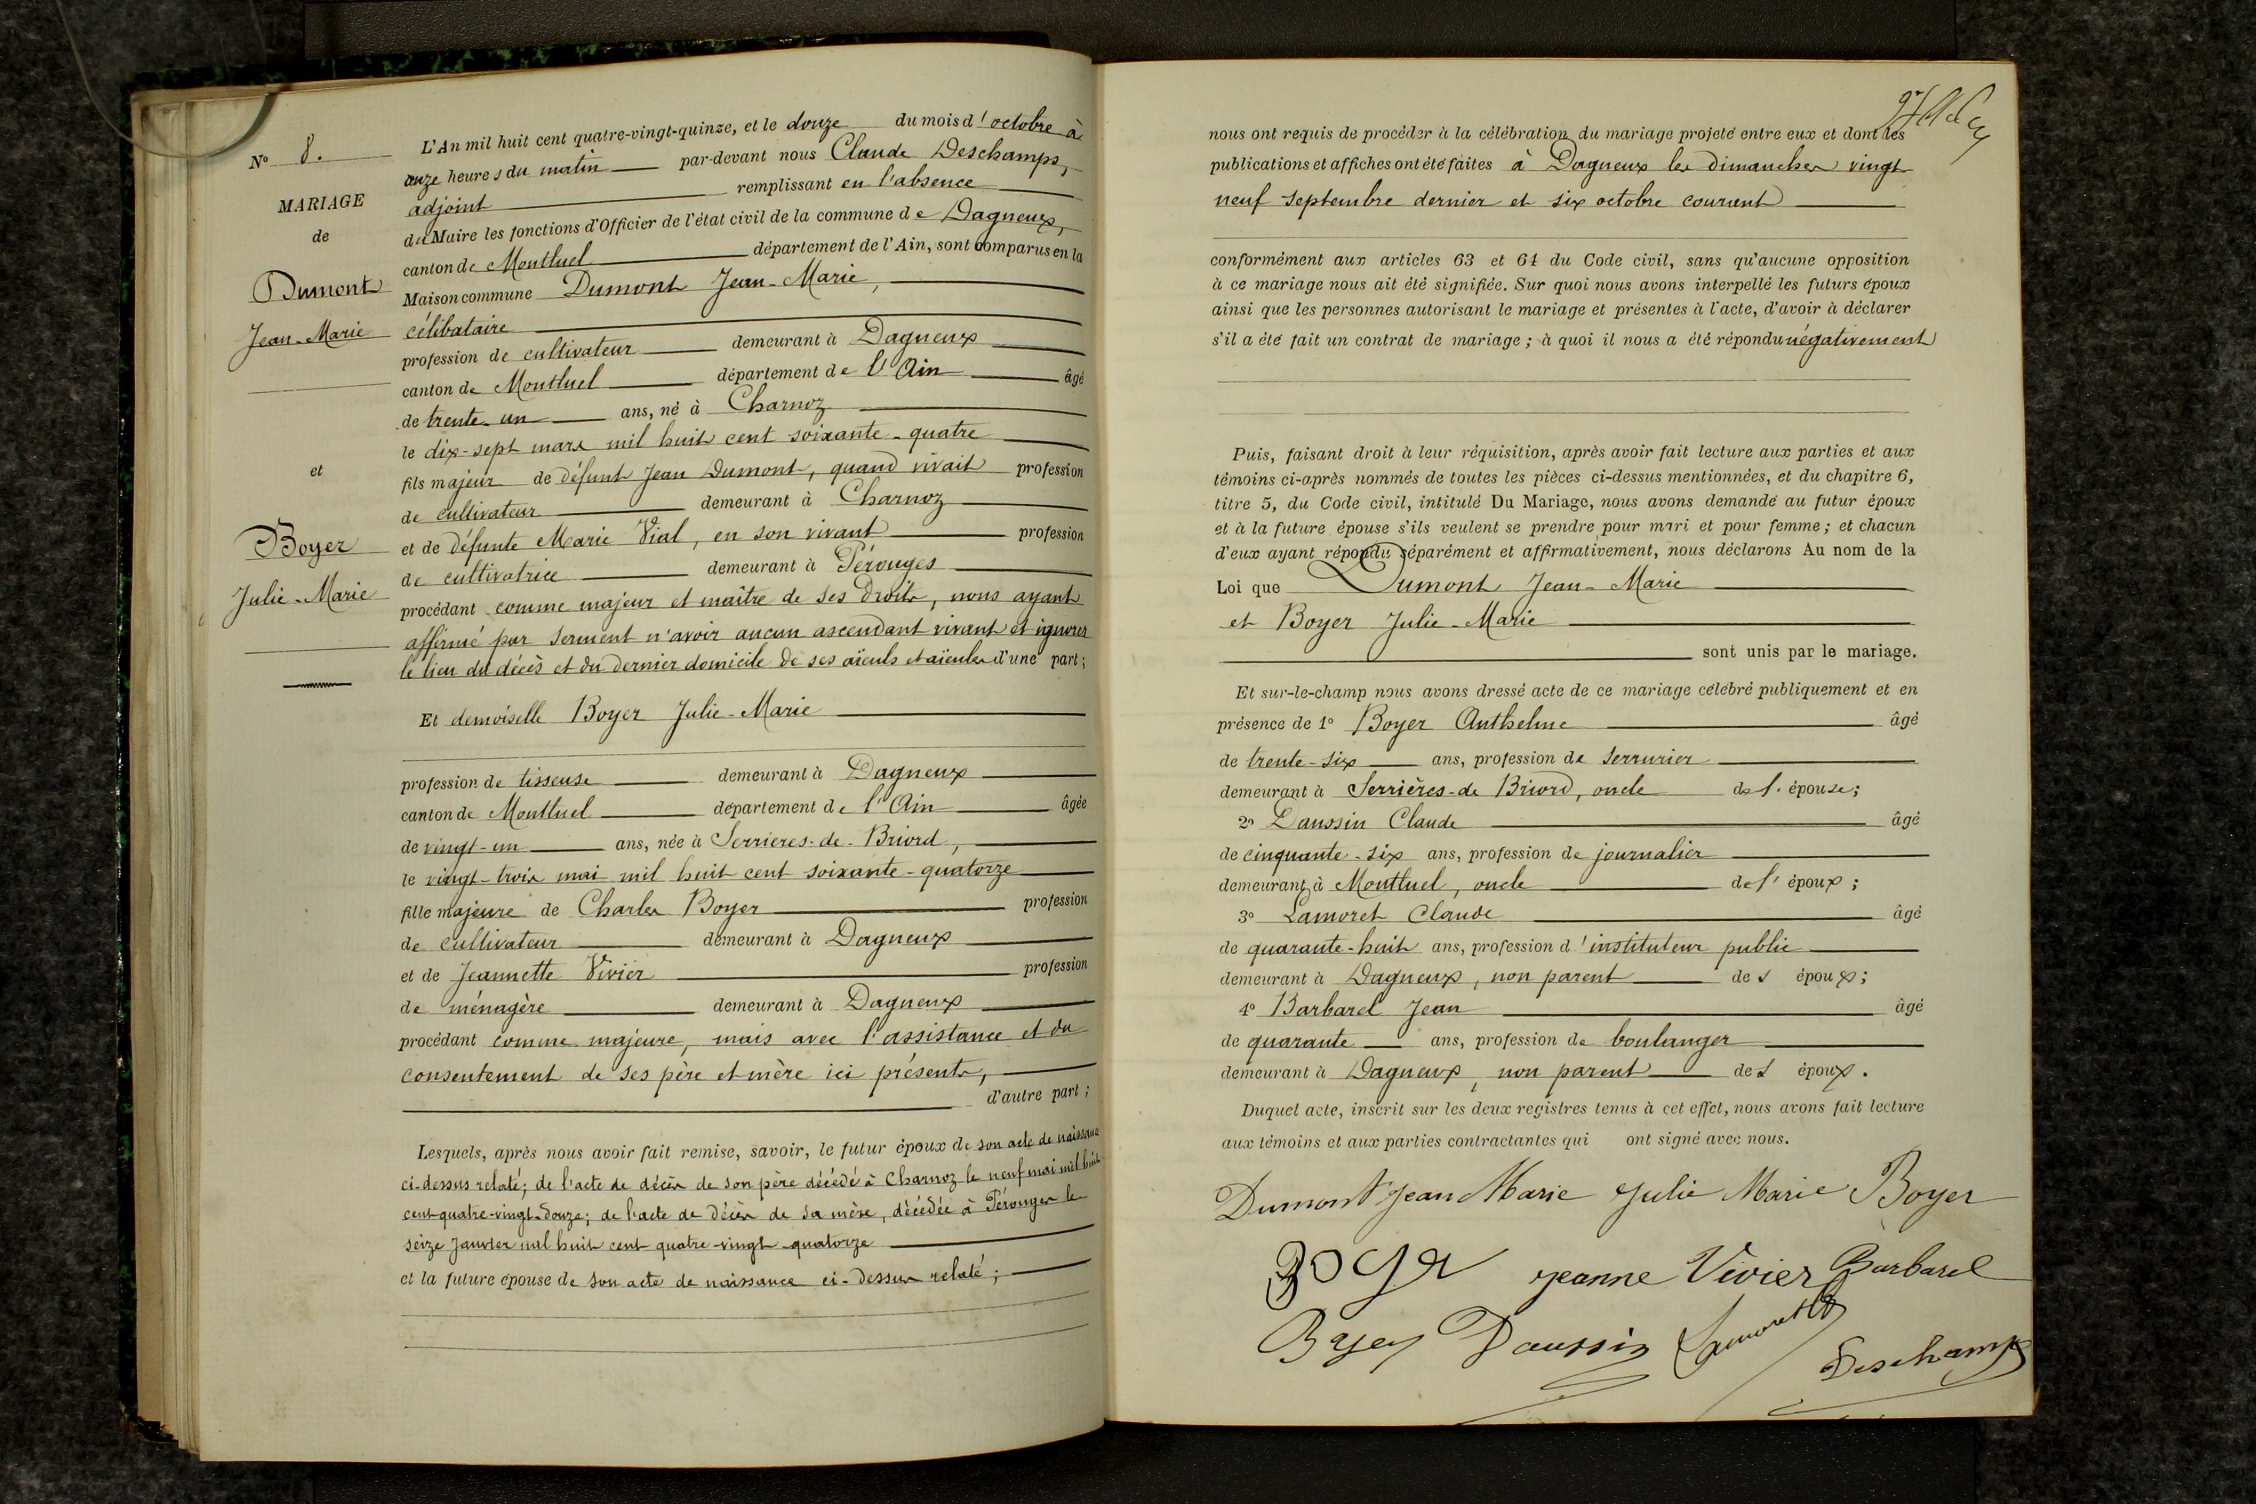 N° 8.
MARIAGE
de
Dumont
Jean-Marie
et
Boyer
Julie-Marie
L'An mil huit cent quatre-vingt-quinze, et le douze du mois d'octobre à
onze heures du matin par-devant nous Claude Deschamps,
adjoint remplissant en l'absence
du Maire les fonctions d'Officier de l'état civil de la commune de Dagneux,
canton de Montluel département de l'Ain, sont comparus en la
Maison commune Dumont Jean-Marie,
célibataire
profession de cultivateur demeurant à Dagneux
canton de Montluel département de l'Ain âgé
de trente-un ans, né à Charnoz
le dix-sept mars mil huit cent soixante-quatre
fils majeur de défunt Jean Dumont, quand vivait profession
de cultivateur demeurant à Charnoz
et de défunte Marie Vial, en son vivant profession
de cultivatrice demeurant à Pérouges
procédant comme majeur et maître de ses droits, nous ayant
affirmé par serment n'avoir aucun ascendant vivant et ignorer
le lieu du décès et du dernier domicile de ses aïeuls et aïeules d'une part;
Et demoiselle Boyer Julie-Marie
profession de tisseuse demeurant à Dagneux
canton de Montluel département de l'Ain âgée
de vingt-un ans, née à Serrieres-de-Briord,
le vingt-trois mai mil huit cent soixante-quatorze
fille majeure de Charles Boyer profession
de cultivateur demeurant à Dagneux
et de Jeannette Vivier profession
de ménagère demeurant à Dagneux
procédant comme majeure, mais avec l'assistance et du
consentement de ses père et mère ici présents,
d'autre part;
Lesquels, après nous avoir fait remise, savoir, le futur époux de son acte de naissance
ci-dessus relaté; de l'acte de décès de son père décédé à Charnoz le neuf mai mil huit
cent quatre-vingt-douze; de l'acte de décès de sa mère, décédée à Pérouges le
seize Janvier mil huit cent quatre-vingt-quatorze
et la future épouse de son acte de naissance ci-dessus relaté;
nous ont requis de procéder à la célébration du mariage projeté entre eux et dont les
publications et affiches ont été faites à Dagneux les dimanches vingt
neuf septembre dernier et six octobre courant
conformément aux articles 63 et 64 du Code civil, sans qu'aucune opposition
à ce mariage nous ait été signifiée. Sur quoi nous avons interpellé les futurs époux
ainsi que les personnes autorisant le mariage et présentes à l'acte, d'avoir à déclarer
s'il a été fait un contrat de mariage; à quoi il nous a été répondu négativement
Puis, faisant droit à leur réquisition, après avoir fait lecture aux parties et aux
témoins ci-après nommés de toutes les pièces ci-dessus mentionnées, et du chapitre 6,
titre 5, du Code civil, intitulé Du Mariage, nous avons demandé au futur époux
et à la future épouse s'ils veulent se prendre pour mari et pour femme; et chacun
d'eux ayant répondu séparément et affirmativement, nous déclarons Au nom de la
Loi que Dumont Jean-Marie
et Boyer Julie-Marie
sont unis par le mariage.
Et sur-le-champ nous avons dressé acte de ce mariage célébré publiquement et en
présence de 1° Boyer Anthelme âgé
de trente-six ans, profession de serrurier
demeurant à Serrières-de Briord, oncle de l'épouse;
2° Daussin Claude âgé
de cinquante-six ans, profession de journalier
demeurant à Montluel, oncle de l'époux;
3° Lamoret Claude âgé
de quarante-huit ans, profession d'instituteur public
demeurant à Dagneux, non parent des époux;
4° Barbarel Jean âgé
de quarante ans, profession de boulanger
demeurant à Dagneux, non parent des époux.
Duquel acte, inscrit sur les deux registres tenus à cet effet, nous avons fait lecture
aux témoins et aux parties contractantes qui ont signé avec nous.
Dumont Jean Marie Julie Marie Boyer
Boyer Jeanne Vivier Barbarel
Boyer Daussin Lamoret
Deschamps